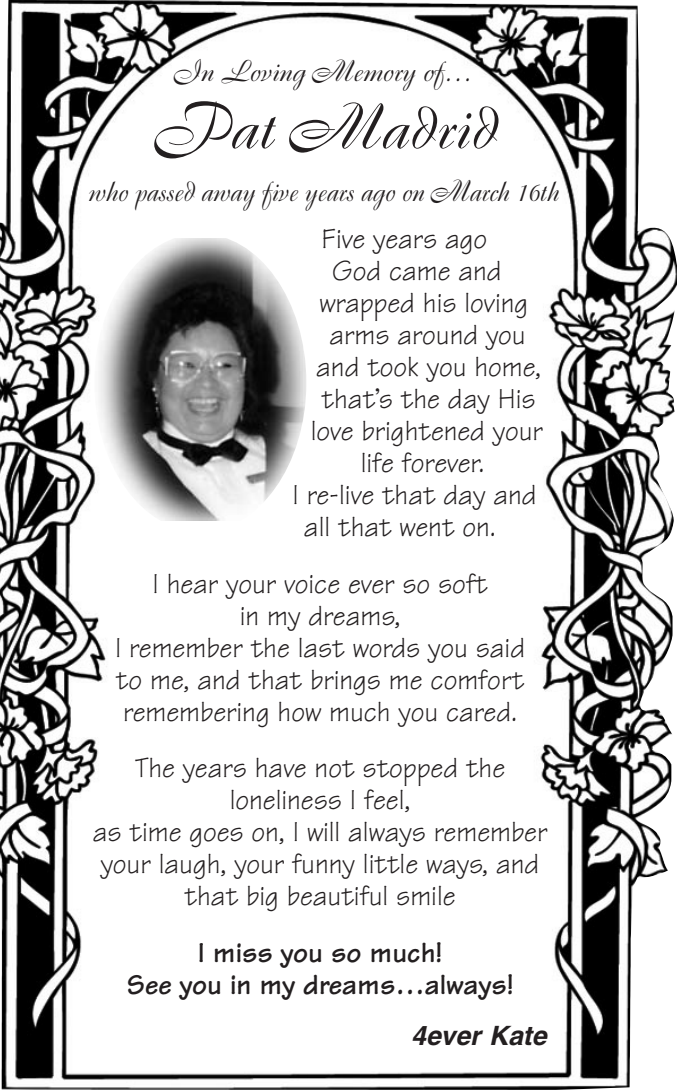 In Loving Memory of...
Pat Madrid
who passed away five years ago on March 16th
Five years ago
God came and
wrapped his loving
arms around you
and took you home,
that's the day His
love brightened your
life forever.
I re-live that day and
all that went on.
I hear your voice ever so soft
in my dreams,
I remember the last words you said
to me, and that brings me comfort
remembering how much you cared.
The years have not stopped the
loneliness I feel,
as time goes on, I will always remember
your laugh, your funny little ways, and
that big beautiful smile
I miss you so much!
See you in my dreams...always!
4ever Kate